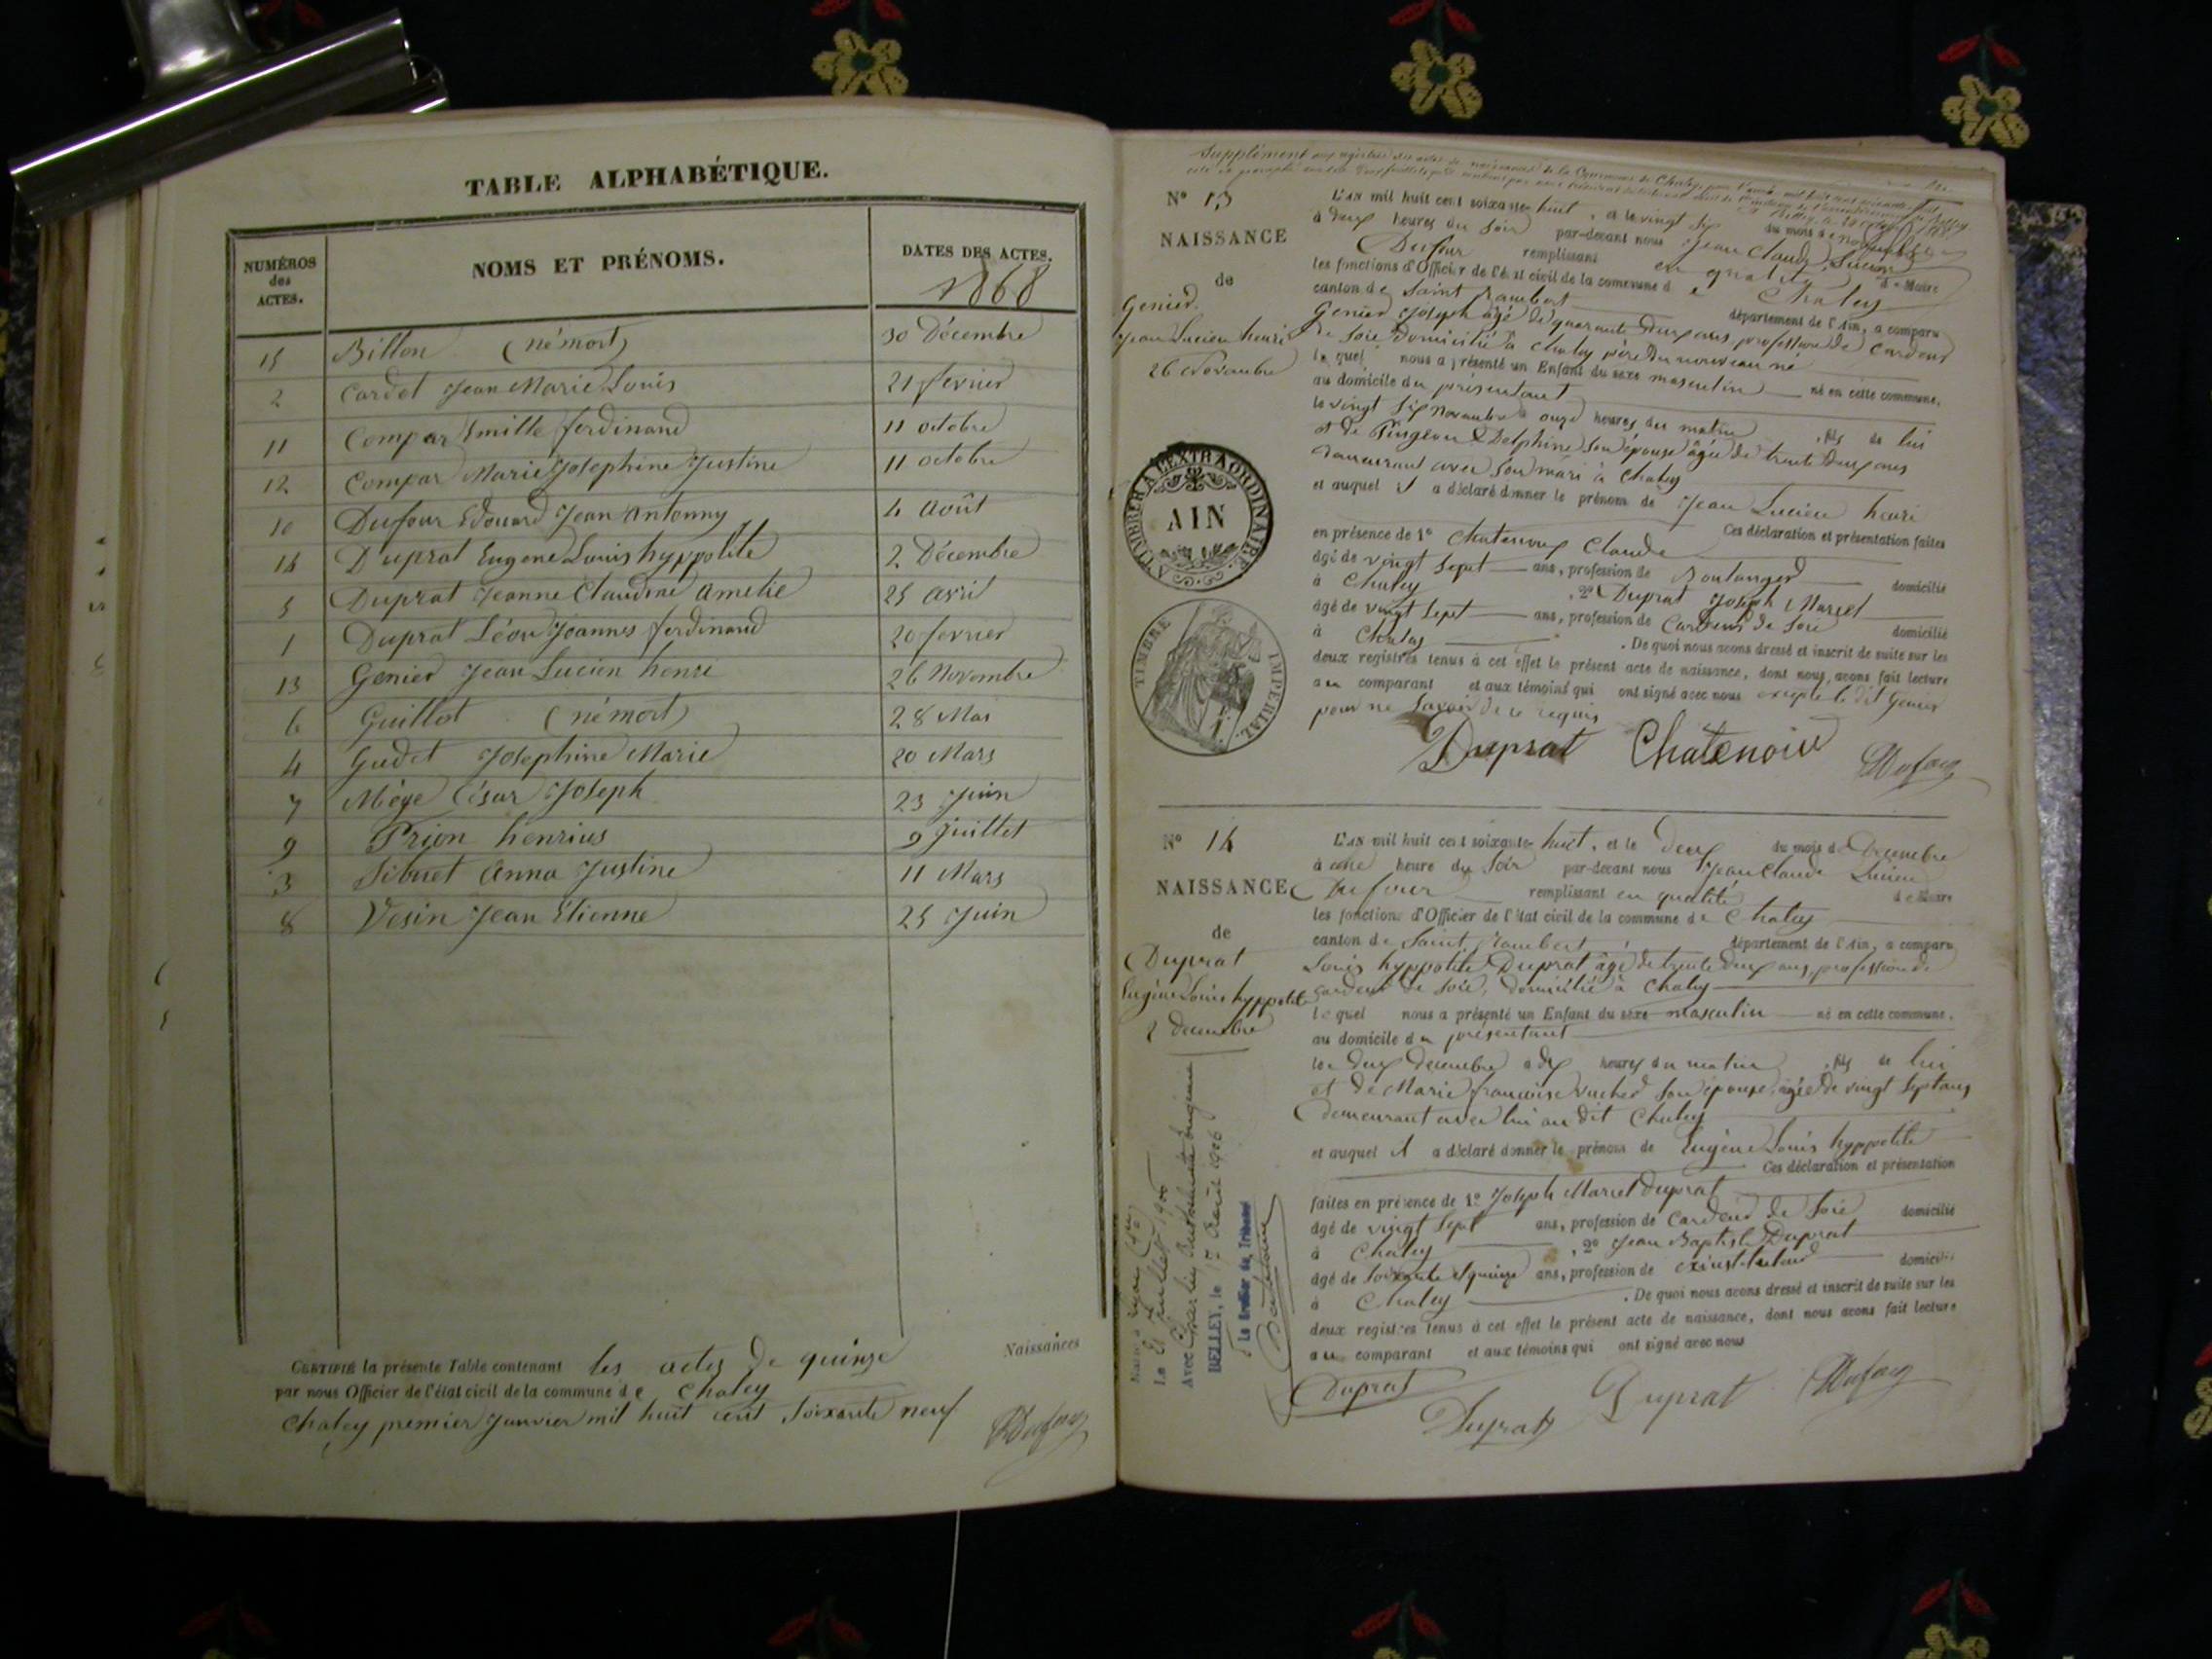 TABLE ALPHABÉTIQUE.
NUMÉROS des ACTES.
NOMS ET PRÉNOMS.
DATES DES ACTES.
1868
15 Billon (né mort) 30 Décembre
2 Cardet Jean Marie Louis 21 fevrier
11 Compar Emille ferdinand 11 octobre
12 Compar Marie Josephine Justine 11 octobre
10 Dufour Edouard Jean Antonny 4 Août
14 Duprat Eugene Louis hyppolite 2 Décembre
5 Duprat Jeanne Claudine Amelie 25 avril
1 Duprat Léon Joannes ferdinand 20 fevrier
13 Genier Jean Lucien henri 26 Novembre
6 Guillot (né mort) 28 Mai
4 Gudet Josephine Marie 20 Mars
7 Mège César Joseph 23 Juin
9 Prion henrius 9 Juillet
3 Sibuet Anna Justine 11 Mars
8 Vesin Jean Etienne 25 Juin
CERTIFIÉ la présente Table contenant les actes de quinze Naissances
par nous Officier de l'état civil de la commune de Chaley
Chaley premier Janvier mil huit cent soixante neuf
Supplément aux registres des actes de naissances de la Commune de Chaley
N° 13
NAISSANCE
de
Genier
Jean Lucien henri
26 Novembre
L'an mil huit cent soixante-huit, et le vingt six du mois de novembre
à deux heures du soir par-devant nous Jean Claude Lucien
Dufour remplissant en qualité de Maire
les fonctions d'Officier de l'état civil de la commune de Chaley
canton de Saint Rambert département de l'Ain, a comparu
Genier Joseph âgé de quarante deux ans, profession de Cardeur
de soie domicilié à Chaley père du nouveau né
lequel nous a présenté un Enfant du sexe masculin né en cette commune,
au domicile du présentant
le vingt six novembre à onze heures du matin, fils de lui
et de Pingeon Delphine son épouse âgée de trente deux ans
demeurant avec son mari à Chaley
et auquel il a déclaré donner le prénom de Jean Lucien henri
Ces déclaration et présentation faites
en présence de 1° Chatenoux Claude
âgé de vingt sept ans, profession de Boulanger domicilié
à Chaley, 2° Duprat Joseph Marcel
âgé de vingt sept ans, profession de Cardeur de Soie domicilié
à Chaley. De quoi nous avons dressé et inscrit de suite sur les
deux registres tenus à cet effet le présent acte de naissance, dont nous avons fait lecture
au comparant et aux témoins qui ont signé avec nous excepté le dit Genier
pour ne savoir de ce requis
A TIMBRER A L'EXTRAORDINAIRE
AIN
TIMBRE IMPERIAL
Duprat Chatenoux Dufour
N° 14
NAISSANCE
de
Duprat
Eugène Louis hyppolite
2 décembre
L'an mil huit cent soixante-huit, et le deux du mois de Décembre
à une heure du Soir par-devant nous Jean Claude Lucien
Dufour remplissant en qualité de Maire
les fonctions d'Officier de l'état civil de la commune de Chaley
canton de Saint Rambert département de l'Ain, a comparu
Louis hyppolite Duprat âgé de trente deux ans, profession de
cardeur de soie, domicilié à Chaley
lequel nous a présenté un Enfant du sexe masculin né en cette commune,
au domicile du présentant
le deux décembre à dix heures du matin, fils de lui
et de Marie françoise Vucher son épouse, agée de vingt sept ans
demeurant avec lui au dit Chaley
et auquel il a déclaré donner le prénom de Eugène Louis hyppolite
Ces déclaration et présentation
faites en présence de 1° Joseph Marcel Duprat
âgé de vingt sept ans, profession de Cardeur de Soie domicilié
à Chaley, 2° Jean Baptiste Duprat
âgé de soixante quinze ans, profession de domicilié
à Chaley. De quoi nous avons dressé et inscrit de suite sur les
deux registres tenus à cet effet le présent acte de naissance, dont nous avons fait lecture
au comparant et aux témoins qui ont signé avec nous
Duprat Duprat Duprat Dufour
Le Juillet 1900
Avec
BELLEY, le 17 Avril 1906
Le Greffier du Tribunal